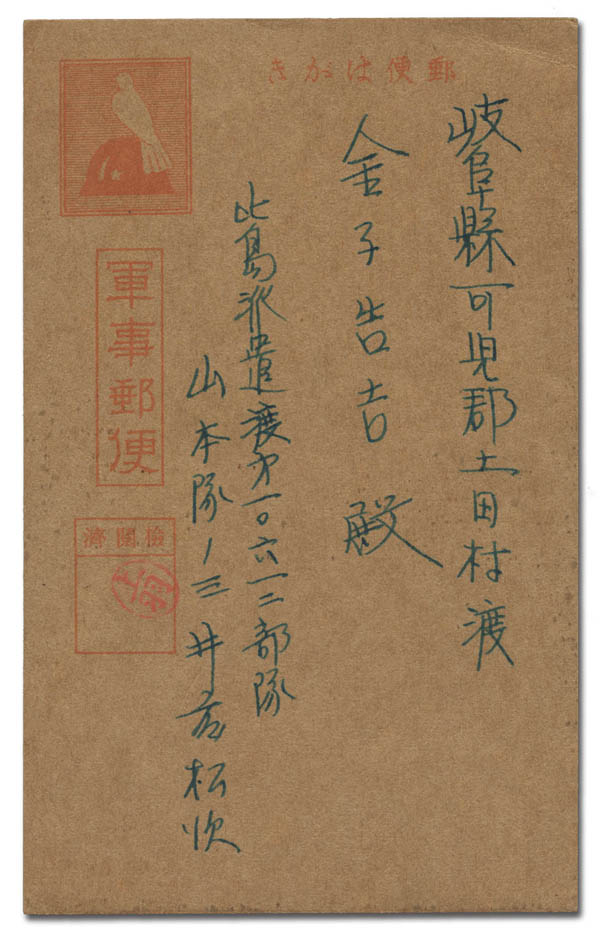 郵便はがき
岐阜縣可児郡土田村渡
金子吉 殿
比島派遣渡才一〇六一二部隊
山本隊ノ三 井 松次
軍事郵便
檢閲濟